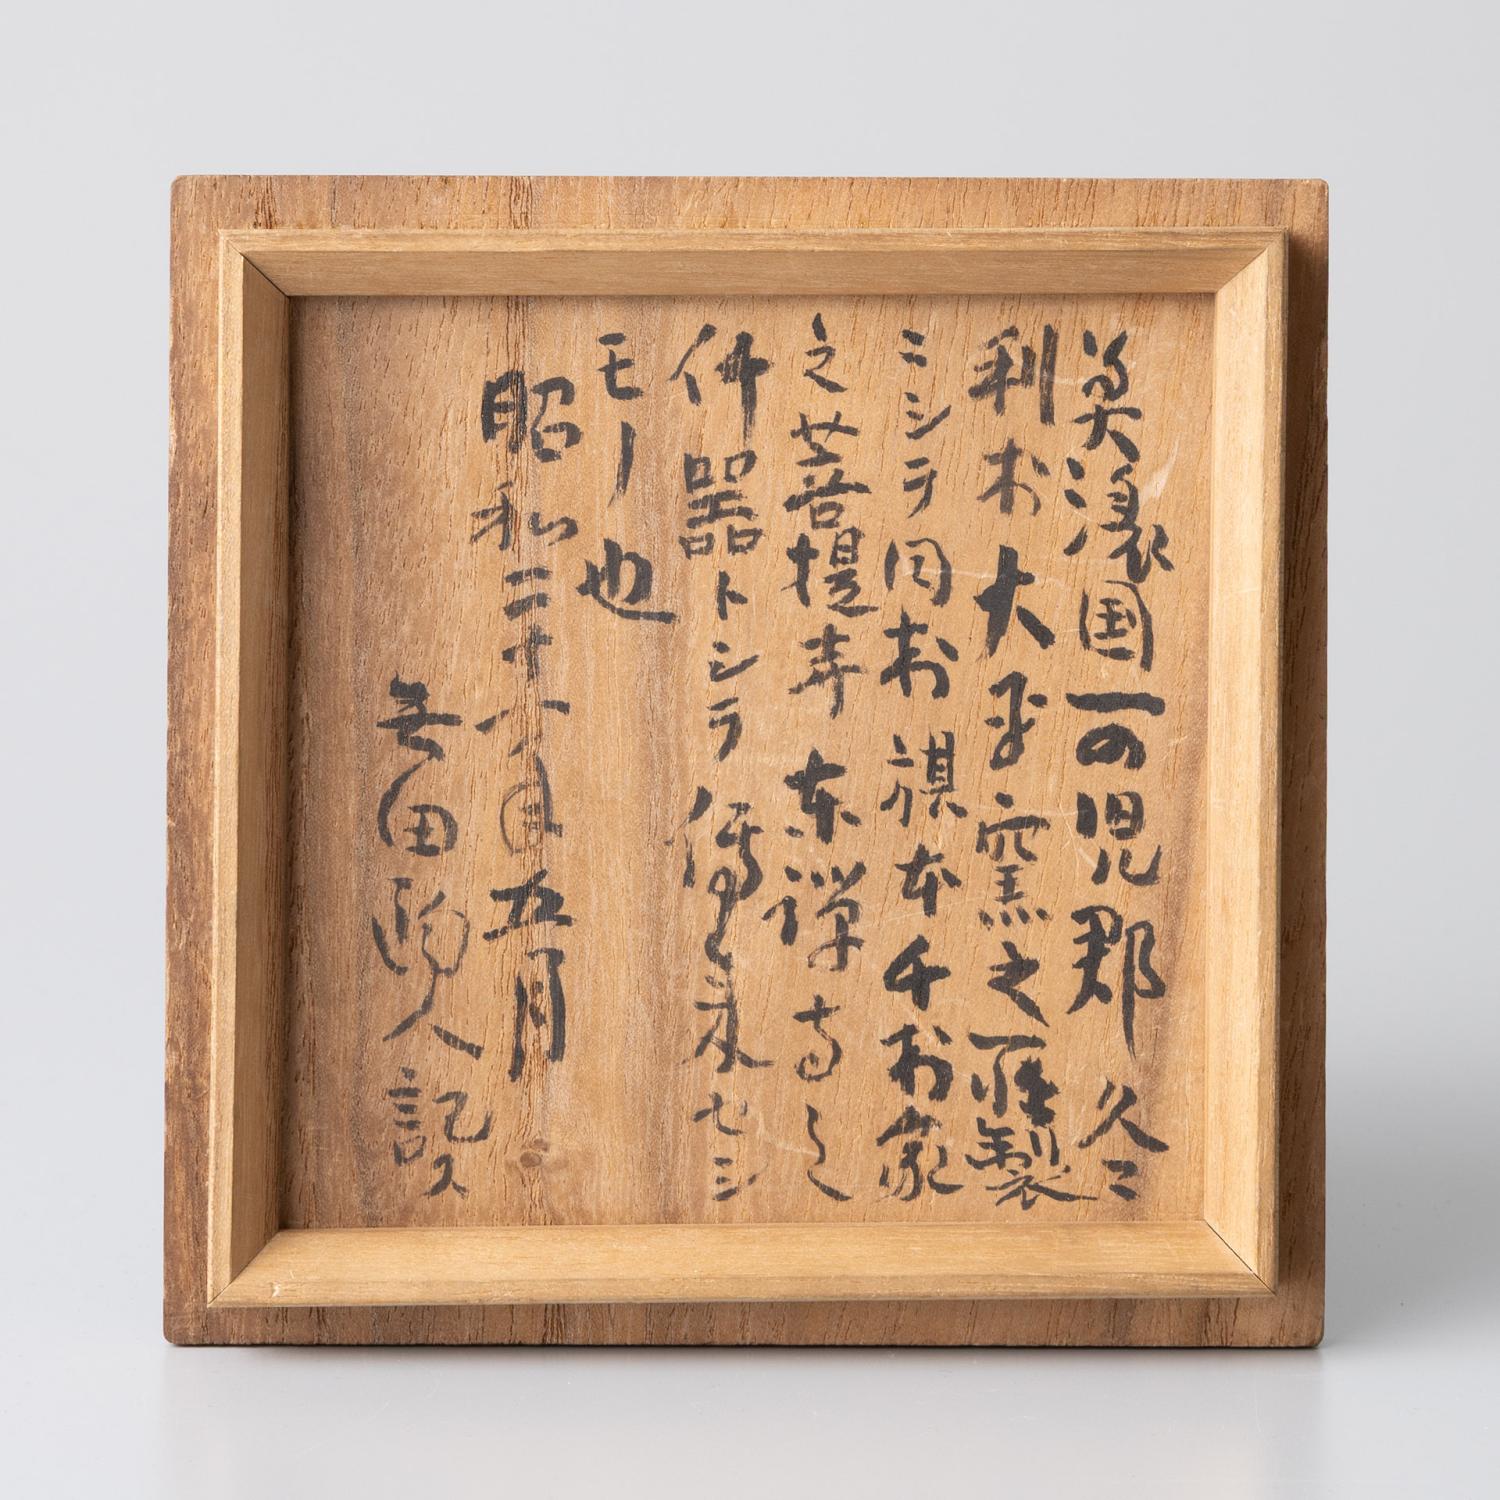 美濃国可児郡久々
利村大平窯之所製
ニシテ同村旗本千村家
之菩提寺東禅寺之
什器トシテ傳来セシ
モノ也
昭和二十六年五月
田陶人記ス